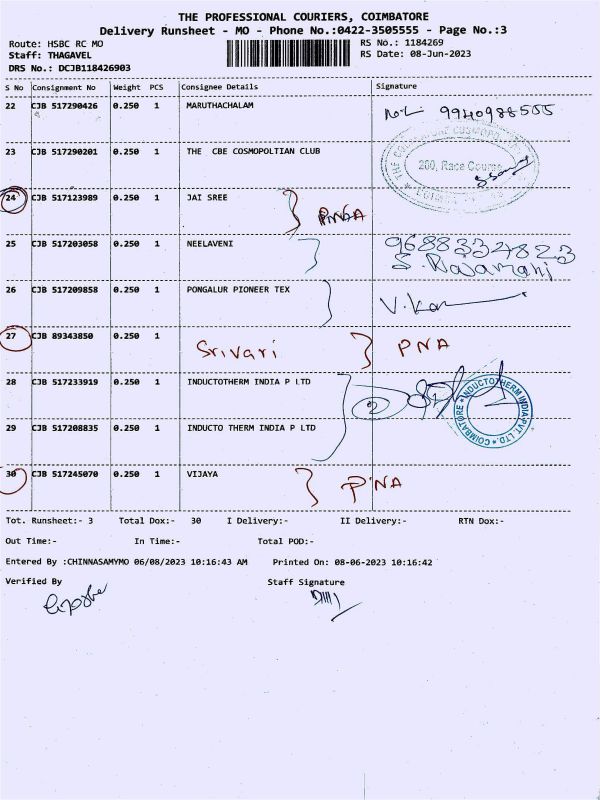 THE PROFESSIONAL COURIERS, COIMBATORE
Delivery Runsheet - MO - Phone No.:0422-3505555 - Page No.:3
Route: HSBC RC MO
RS No.: 1184269
Staff: THAGAVEL
RS Date: 08-Jun-2023
DRS No.: DCJB118426903
S No Consignment No Weight PCS Consignee Details Signature
22 CJB 517290426 0.250 1 MARUTHACHALAM 9940988555
23 CJB 517290201 0.250 1 THE CBE COSMOPOLTIAN CLUB
200, Race Course
24 CJB 517123989 0.250 1 JAI SREE
25 CJB 517203058 0.250 1 NEELAVENI 9688334823
S. Rajamani
26 CJB 517209858 0.250 1 PONGALUR PIONEER TEX
27 CJB 89343850 0.250 1 Srivari PNA
28 CJB 517233919 0.250 1 INDUCTOTHERM INDIA P LTD
2
INDUCTOTHERM INDIA PVT. LTD
COIMBATORE
29 CJB 517208835 0.250 1 INDUCTO THERM INDIA P LTD
30 CJB 517245070 0.250 1 VIJAYA PNA
Tot. Runsheet:- 3 Total Dox:- 30 I Delivery:- II Delivery:- RTN Dox:-
Out Time:- In Time:- Total POD:-
Entered By :CHINNASAMYMO 06/08/2023 10:16:43 AM Printed On: 08-06-2023 10:16:42
Verified By Staff Signature